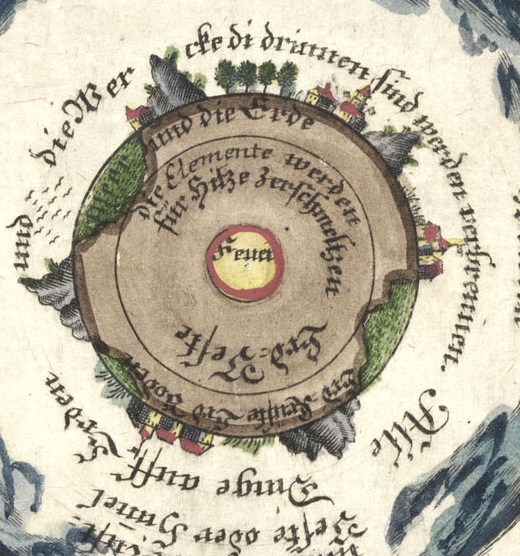 und die Wer cke di drinnen sind werden verbrennen.
und die Erde
die Elemente werden
für Hitze Zerschmeltzen
Feuer
Erd-Veste
Erd Boden
Alle
Dinge auff Erden
Veste oder Himel